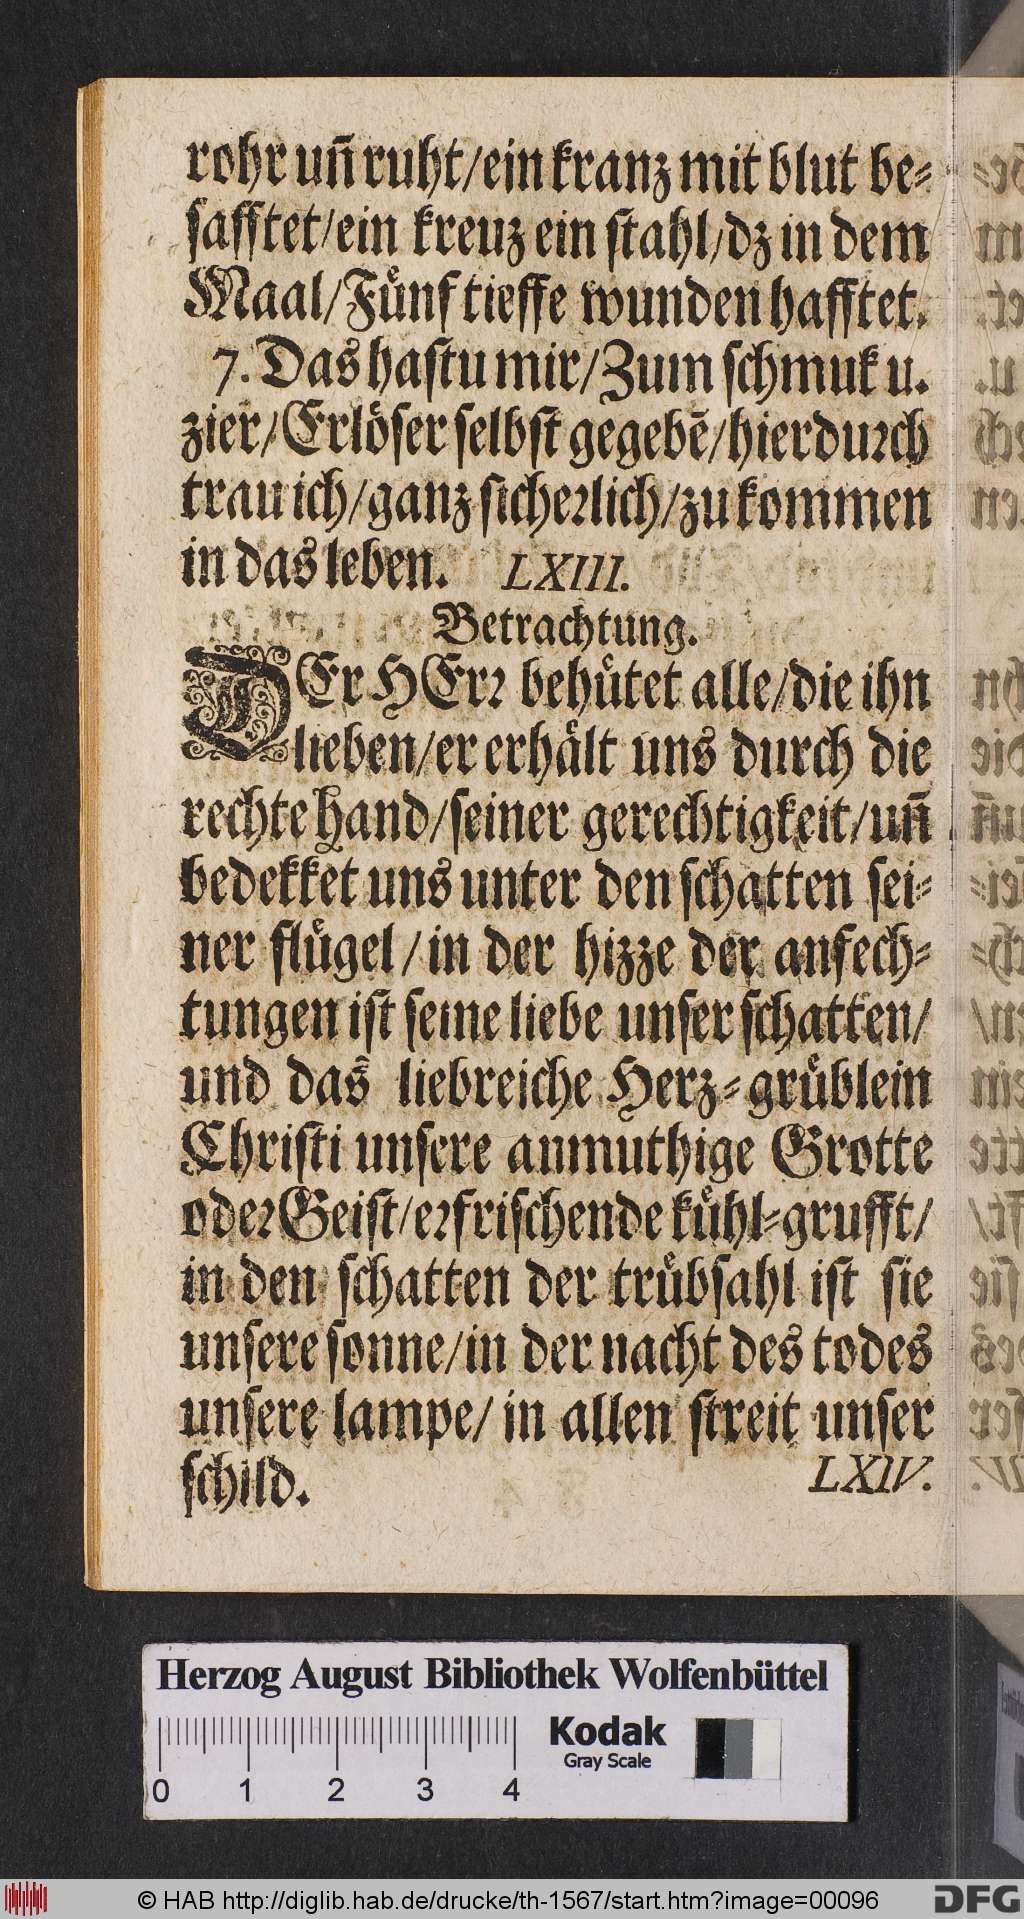 rohr uñ ruht/ein kranz mit blut be-
safftet/ein kreuz ein stahl/dz in dem
Maal/Fuͤnf tieffe wunden hafftet.
7. Das hastu mir/Zum schmuk u.
zier/Erloͤser selbst gegebẽ/hierdurch
trau ich/ganz sicherlich/zu kommen
in das leben. LXIII.
Betrachtung.
DEr HErr behuͤtet alle/die ihn
lieben/er erhaͤlt uns durch die
rechte Hand/seiner gerechtigkeit/uñ
bedekket uns unter den schatten sei-
ner fluͤgel/in der hizze der anfech-
tungen ist seine liebe unser schatten/
und das liebreiche Herz-gruͤblein
Christi unsere anmuthige Grotte
oder Geist/erfrischende kuͤhl-grufft/
in den schatten der truͤbsahl ist sie
unsere sonne/in der nacht des todes
unsere lampe/in allen streit unser
schild. LXIV.
Herzog August Bibliothek Wolfenbüttel
Kodak
Gray Scale
0 1 2 3 4
© HAB http://diglib.hab.de/drucke/th-1567/start.htm?image=00096
DFG